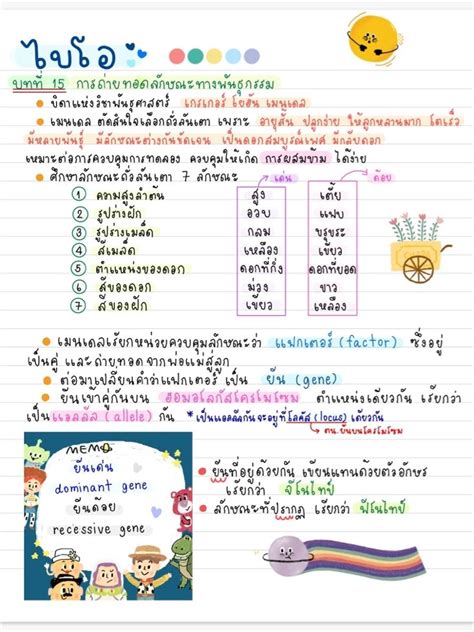 ไบโอ
บทที่ 15 การถ่ายทอดลักษณะทางพันธุกรรม
• บิดาแห่งวิชาพันธุศาสตร์ เกรเกอร์ โยฮัน เมนเดล
• เมนเดล ตัดสินใจเลือกถั่วลันเตา เพราะ อายุสั้น ปลูกง่าย ให้ลูกหลานมาก โตเร็ว
มีหลายพันธุ์ มีลักษณะต่างกันชัดเจน เป็นดอกสมบูรณ์เพศ มีกลีบดอก
เหมาะต่อการควบคุมการทดลอง ควบคุมให้เกิด การผสมข้าม ได้ง่าย
• ศึกษาลักษณะถั่วลันเตา 7 ลักษณะ เด่น ด้อย
1 ความสูงลำต้น สูง เตี้ย
2 รูปร่างฝัก อวบ แฟบ
3 รูปร่างเมล็ด กลม ขรุขระ
4 สีเมล็ด เหลือง เขียว
5 ตำแหน่งของดอก ดอกที่กิ่ง ดอกที่ยอด
6 สีของดอก ม่วง ขาว
7 สีของฝัก เขียว เหลือง
• เมนเดลเรียกหน่วยควบคุมลักษณะว่า แฟกเตอร์ (factor) ซึ่งอยู่
เป็นคู่ และถ่ายทอดจากพ่อแม่สู่ลูก
• ต่อมาเปลี่ยนคำว่าแฟกเตอร์ เป็น ยีน (gene)
• ยีนเข้าคู่กันบน ฮอมอโลกัสโครโมโซม ตำแหน่งเดียวกัน เรียกว่า
เป็นแอลลีล (allele) กัน *เป็นแอลลีลกันจะอยู่ที่โลคัส (locus) เดียวกัน
ตน.ยีนบนโครโมโซม
MEMO
ยีนเด่น
dominant gene
ยีนด้อย
recessive gene
• ยีนที่อยู่ด้วยกัน เขียนแทนด้วยตัวอักษร
เรียกว่า จีโนไทป์
• ลักษณะที่ปรากฏ เรียกว่า ฟีโนไทป์